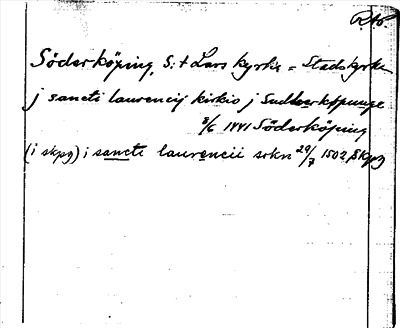 Rtb
Söderköping, S:t Lars kyrka = Stadskyrka
j sancti laurencij kirkio j Sudherköpunge
8/6 1441 Söderköping
(i skpg) i sancti laurencii sokn 29/7 1502 Skpg